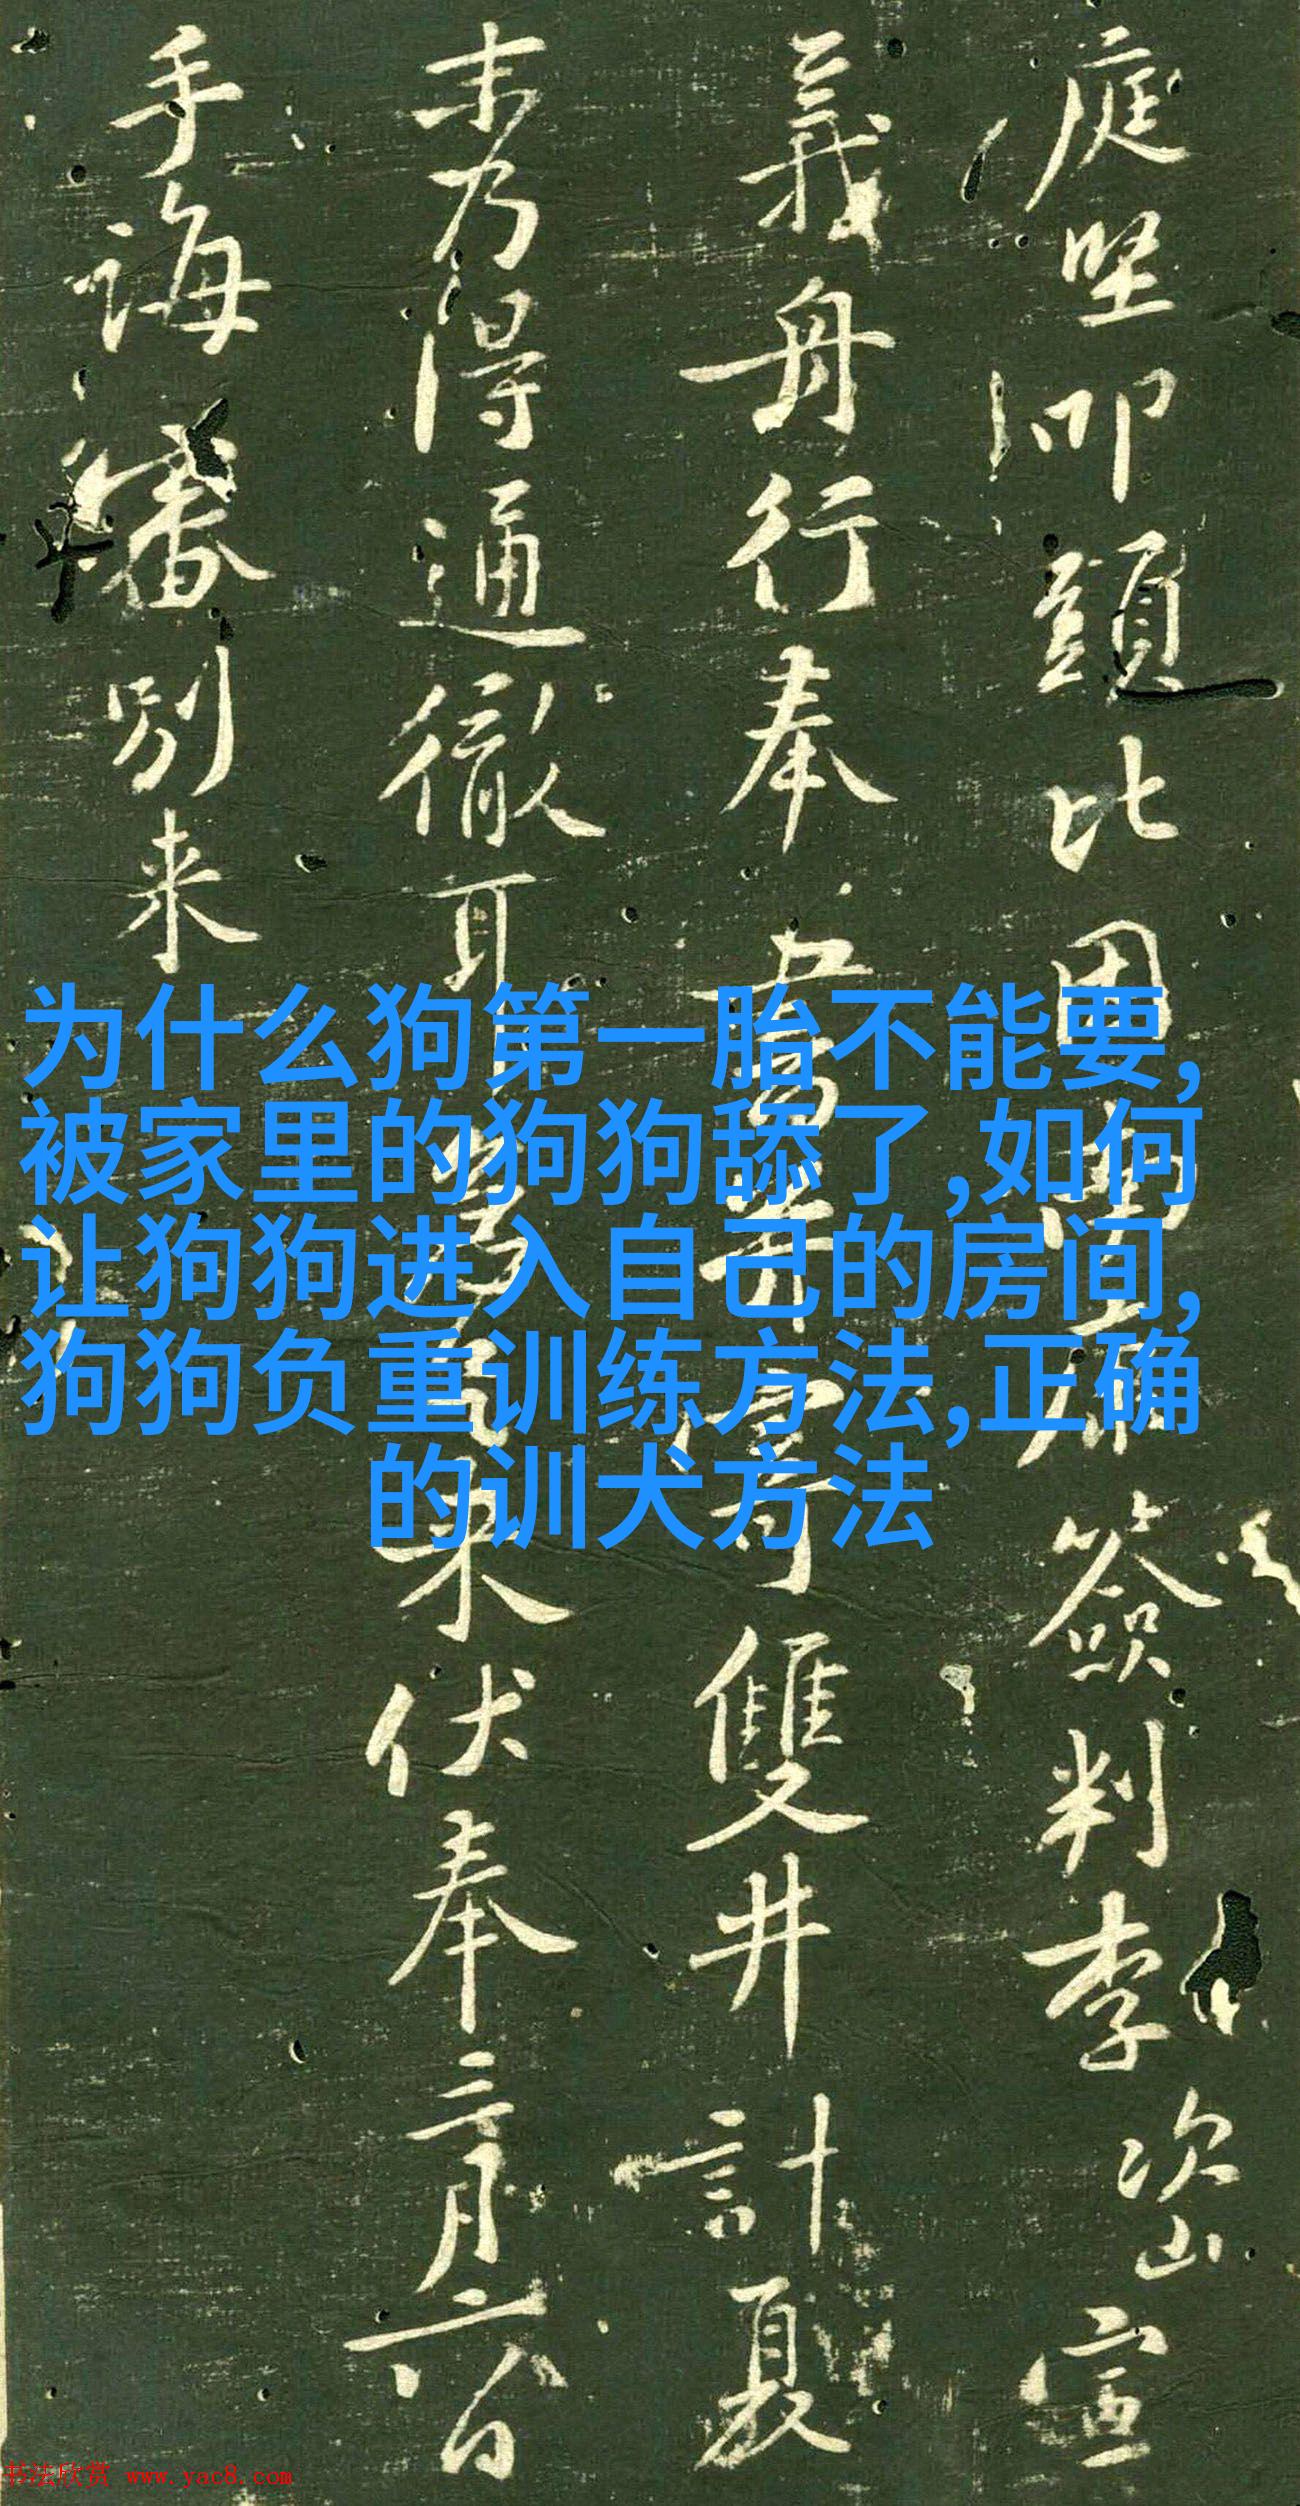 庭坚叩頭比因南康
簽判李次山宣
義舟行奉書并寄雙井計夏
末乃得通徹耳
来伏奉三月六日
手誨審別来
为什么狗第一胎不能要,
被家里的狗狗舔了,如何
让狗狗进入自己的房间,
狗狗负重训练方法,正确
的训犬方法
书法欣赏 www.yac8.com